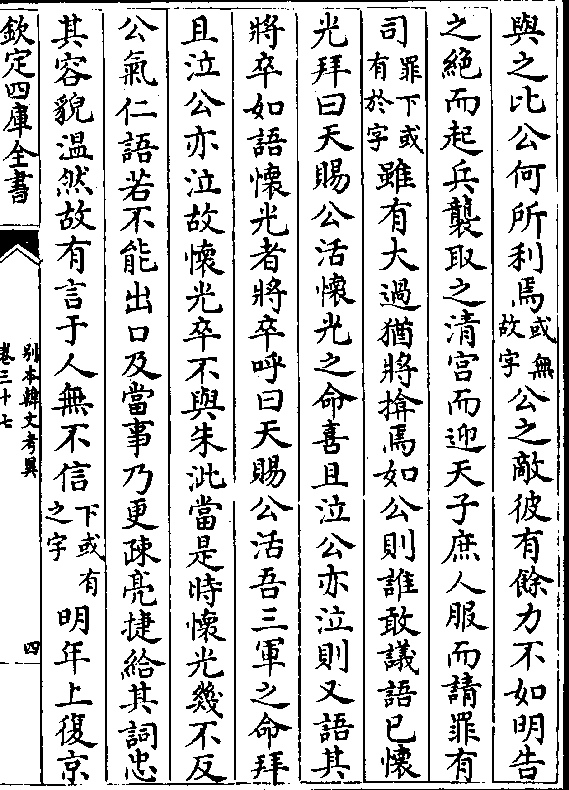 與之比公何所利焉或無故字公之敵彼有餘力不如明告
之絶而起兵襲取之清宫而迎天子庶人服而請罪有
司罪下或有於字雖有大過猶將揜焉如公則誰敢議語已懷
光拜曰天賜公活懷光之命喜且泣公亦泣則又語其
將卒如語懷光者將卒呼曰天賜公活吾三軍之命拜
且泣公亦泣故懷光卒不與朱泚當是時懷光幾不反
公氣仁語若不能出口及當事乃更疎亮捷給其詞忠
其容貌温然故有言于人無不信下或有之字明年上復京
欽定四庫全書
别本韓文考異
卷三十七
四